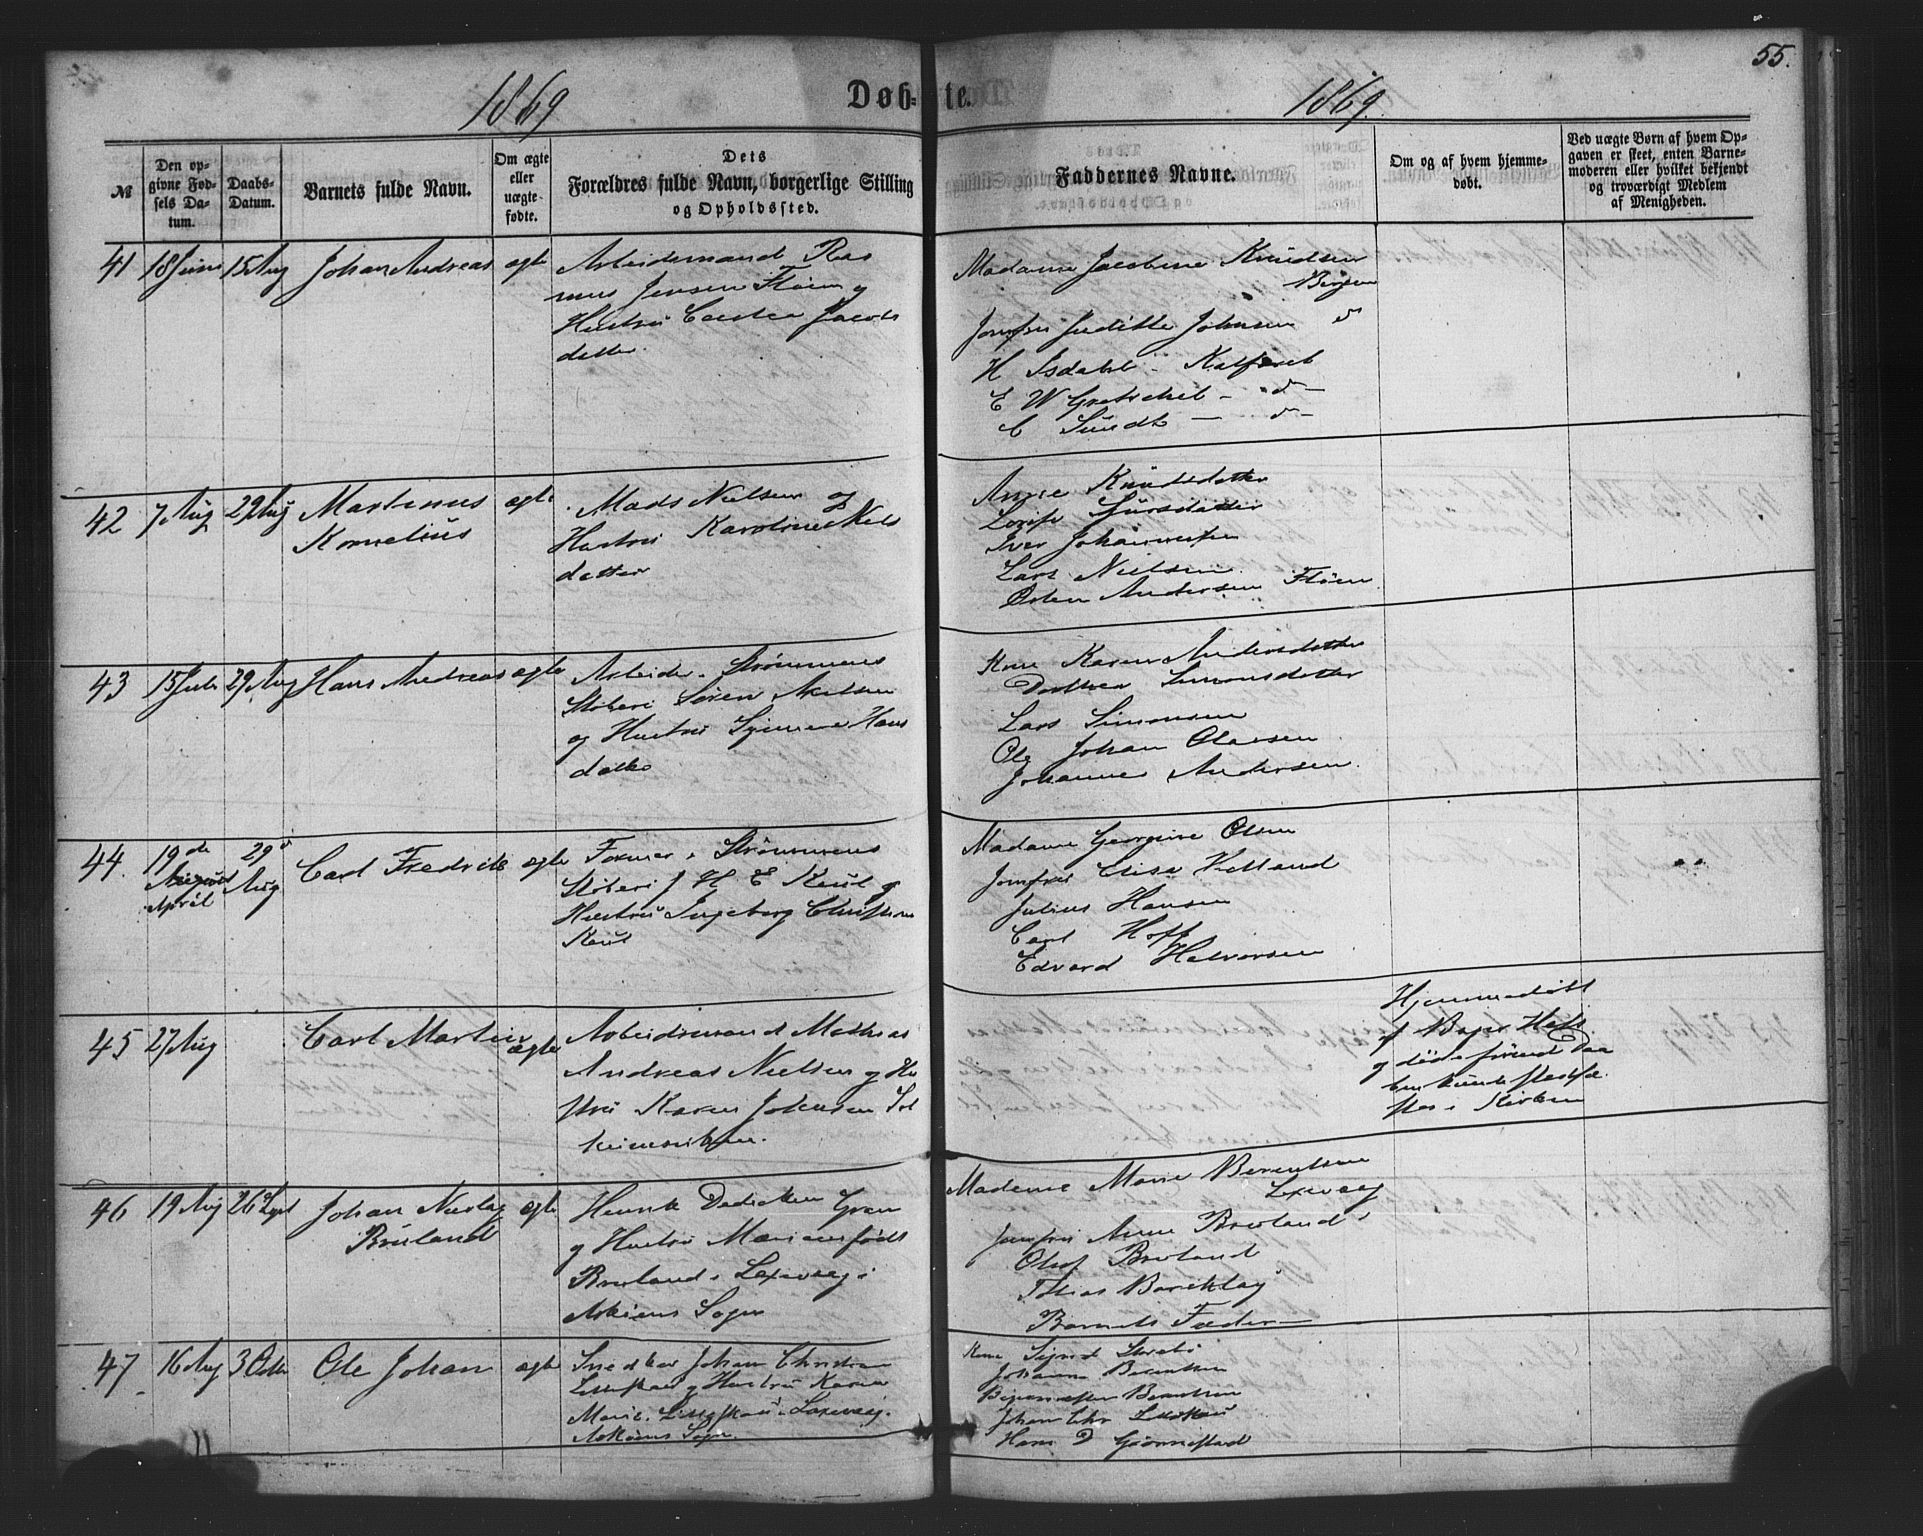 55.
1869
Døb-te.
1869.
№
Den op-
givne Fød-
sels Da-
tum.
Daabs-
Datum.
Barnets fulde Navn.
Om ægte
eller
uægte
fødte.
Dets
Forældres fulde Navn, borgerlige Stilling
og Opholdssted.
Faddernes Navne.
Om og af hvem hjemme-
døbt.
Ved uægte Børn af hvem Op-
gaven er skeet, enten Barne-
moderen eller hvilket bekjendt
og troværdigt Medlem
af Menigheden.
41 18 Juni 15 Aug Johan Andreas ægte
Arbeidsmand Ras
mus Jensen Fløien og
Hustru Jacobs
datter.
Madame Jacobine Knudsen
Bergen
Jomfru Judithe Johnsen d
H Isdahl - Kalfaret
E W Gretschel - d -
C Sundt - d -
42 7 Aug 29 Aug Martinus
Kornelius
ægte
Mads Nielsen og
Hustru Karoline Nels
datter
Anne Knudsdatter
Iver Johannesen
Lars Nielsen
Østen Andersen Fløien
43 15 Juli 29 Aug Hans Andreas ægte
Arbeider i Strømmens
Støberi Søren Nielsen
og Hustru Hans
datter
Kone Karen Andersdatter
Dorthea Simonsdatter
Lars Simonsen
Ole Johan Olaisen
Johannes Andersen.
44. 19de
April
29d
Aug
Carl Fredrik ægte
Former i Strømmens
Støberi J H E Keul og
Hustru Ingeborg Christine
Keul
Madame Georgine Olsen
Jomfru Elisa Kielland
Julius Hansen
Carl Hoff
Edvard Halvorsen
45 27 Aug Carl Martin ægte
Arbeidsmand Mathias
Andreas Nielsen og Hu
stru Karen Johnsen Sol
heimsviken.
Hjemmedøbt
af
og døde førend Daa
ben kunde stadfæ
stes i Kirken
46 19 Aug 26 Sept Johan Nicolay
Bruland
ægte
Henrik Didriksen Gran
og Hustru Marianne født
Bruland i Laxevaag i
Askøens Sogn
Madame Marie Berentsen
Laxevaag
Jomfru Anne Bruland
Oluf Bruland
Tobias Barcklay
Barnets Fader -
47 16 Aug 3 Octbr Ole Johan ægte
Snedker Johan Christian
Lilleskau og Hustru Karen
Marie Lilleskau i Laxevaag.
Askøens Sogn.
Kone Sigrid
Johanne Berentsen
Berentsen
Johan Chr
Hans D Grønnestad